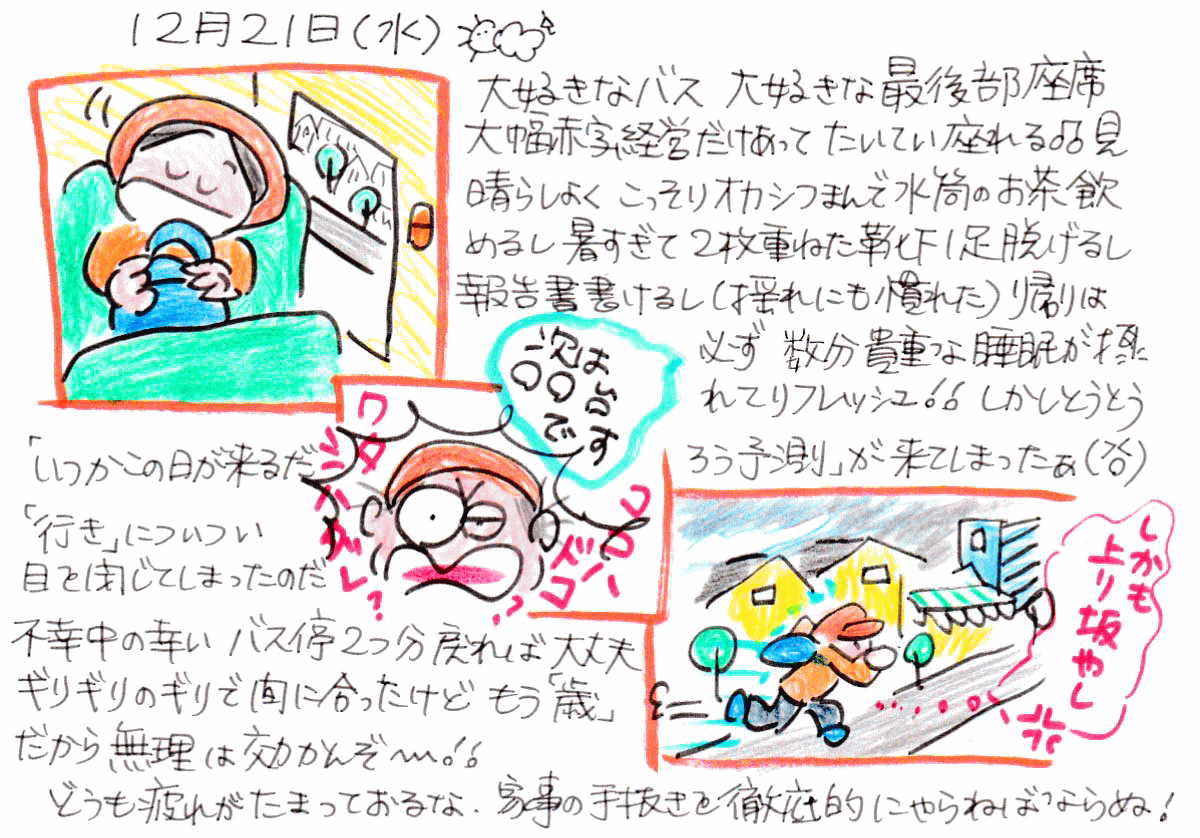 12月21日(水)
大好きなバス 大好きな最後部座席
大幅赤字経営だけあって たいてい座れる!!見
晴らしよく こっそりオカシつまんで水筒のお茶飲
めるし 暑すぎて2枚重ねた靴下1足脱げるし
報告書書けるし(揺れにも慣れた)り帰りは
必ず 数分貴重な睡眠が摂
れてリフレッシュ!!しかしとうとう
「いつかこの日が来るだ
ろう予測」が来てしまったぁ(谷)
「行き」についつい
目を閉じてしまったのだ
不幸中の幸い バス停2つ分戻れば大丈夫
ギリギリのギリで間に合ったけど もう「歳」
だから無理は効かんぞ〜!!
どうも疲れがたまっておるな.家事の手抜きを徹底的にやらねばならぬ!
次は谷す
〇〇で
ワタシ
ココハドコ
しかも
上り坂やし